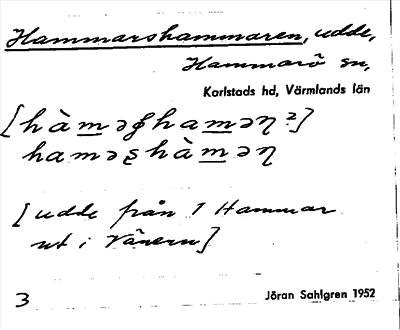 Hammarshammaren, udde,
Hammarö sn,
Karlstads hd, Värmlands län
[hàməʂhaməɳ ?]
haməʂhàməɳ
[udde från 1 Hammar
ut i Vänern]
3
Jöran Sahlgren 1952